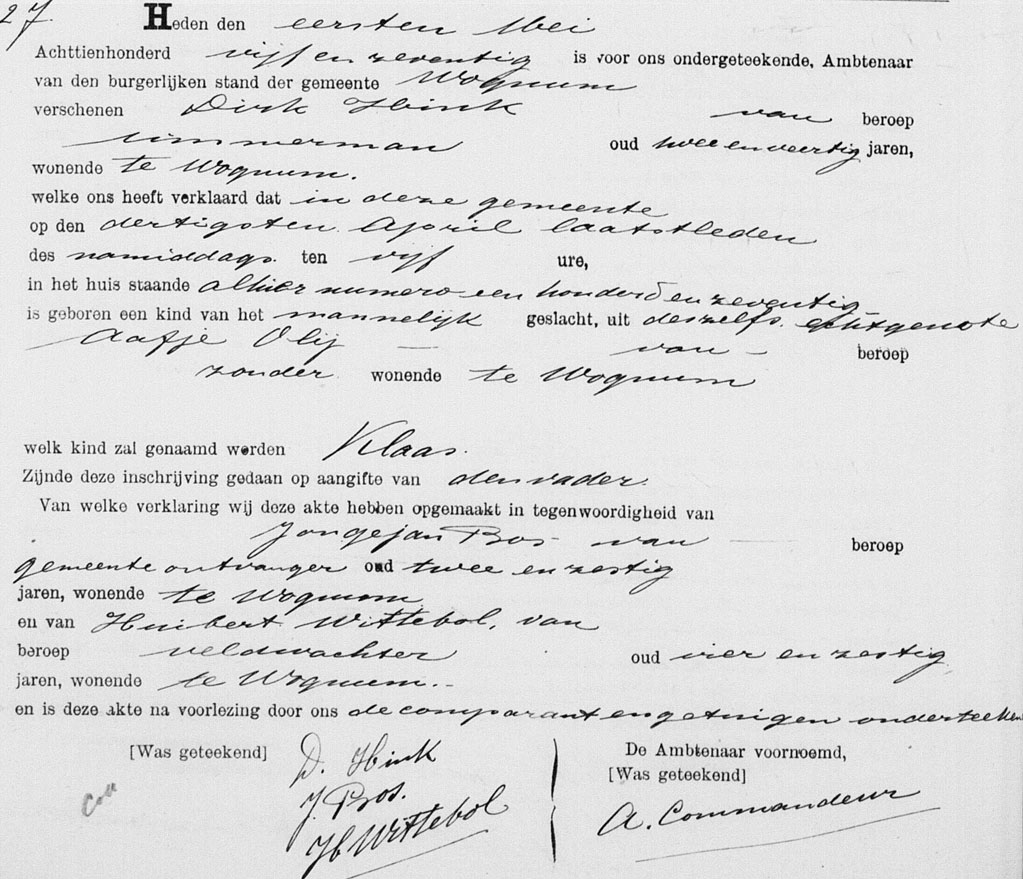 27.
Heden den eersten Mei
Achttienhonderd vijf en zeventig is voor ons ondergeteekende, Ambtenaar
van den burgerlijken stand der gemeente Wognum
verschenen Dirk Hink van beroep
timmerman oud twee en veertig jaren,
wonende te Wognum.
welke ons heeft verklaard dat in deze gemeente
op den dertigsten April laatstleden
des namiddags ten vijf ure,
in het huis staande alhier numero een honderd en zeventig
is geboren een kind van het mannelijk geslacht, uit deszelfs echtgenote
Aafje Olij — van — beroep
zonder wonende te Wognum
welk kind zal genaamd werden Klaas.
Zijnde deze inschrijving gedaan op aangifte van den vader.
Van welke verklaring wij deze akte hebben opgemaakt in tegenwoordigheid van
Jongejan Bos van beroep
gemeente ontvanger oud twee en zestig
jaren, wonende te Wognum
en van Huibert Wittebol, van
beroep veldwachter oud vier en zestig
jaren, wonende te Wognum.
en is deze akte na voorlezing door ons de comparant en getuigen onderteekend
[Was geteekend] D. Hink De Ambtenaar voornoemd,
J. Bos. [Was geteekend]
H Wittebol A. Commandeur